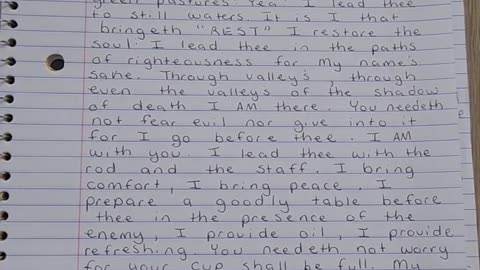 green pastures. Yea. I lead thee
to still waters. It is I that
bringeth "REST" I restore the
soul. I lead thee in the paths
of righteousness for my name's
sake. Through valley's, through
even the valleys of the shadow
of death I AM there. You needeth
not fear evil nor give into it
for I go before thee. I AM
with you. I lead thee with the
rod and the staff. I bring
comfort, I bring peace, I
prepare a goodly table before
thee in the presence of the
enemy, I provide oil, I provide
refreshing. You needeth not worry
for your cup shall be full. My